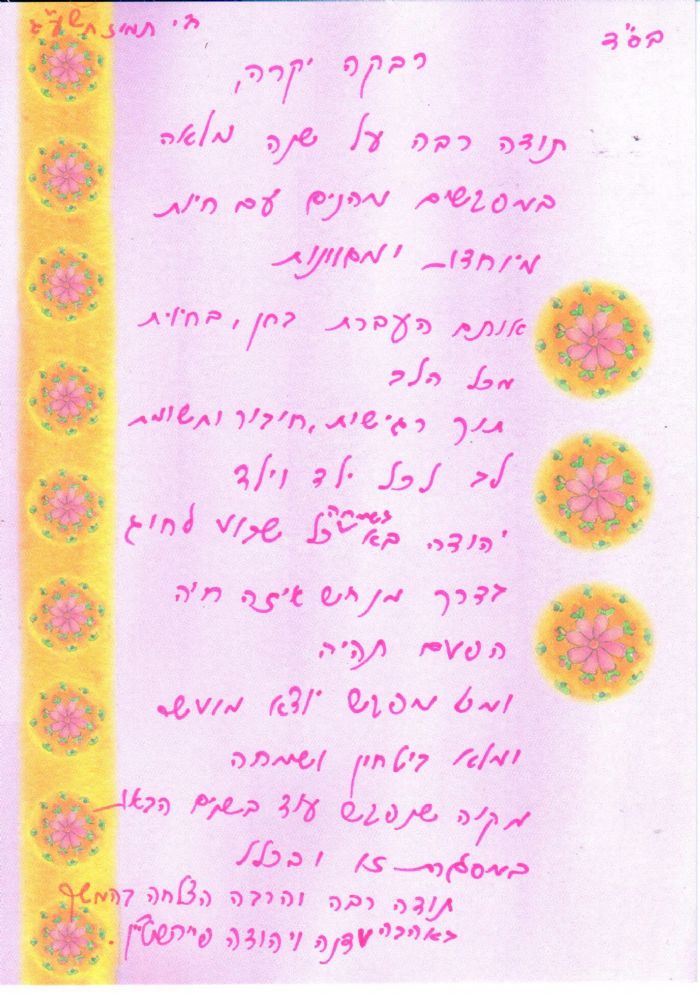 בס"ד
ח"י תמוז תשע"ג
רבקה יקרה,
תודה רבה על שנה מלאה
במפגשים מהנים עם חיות
מיוחדות ומגוונות
אותם העברת בחן, בחיות
מכל הלב
תוך רגישות, חיבור ותשומת
לב לכל ילד וילד
יהודה בא בשמחה כל שבוע לחוג
בדרך מנחש איזה חיה
הפעם תהיה
ומכל מפגש יוצא מועשר
ומלא ביטחון ושמחה
מקוה שנפגש עוד בשנים הבאות
במסגרת זו ובכלל
תודה רבה והרבה הצלחה בהמשך
באהבה עדנה ויהודה